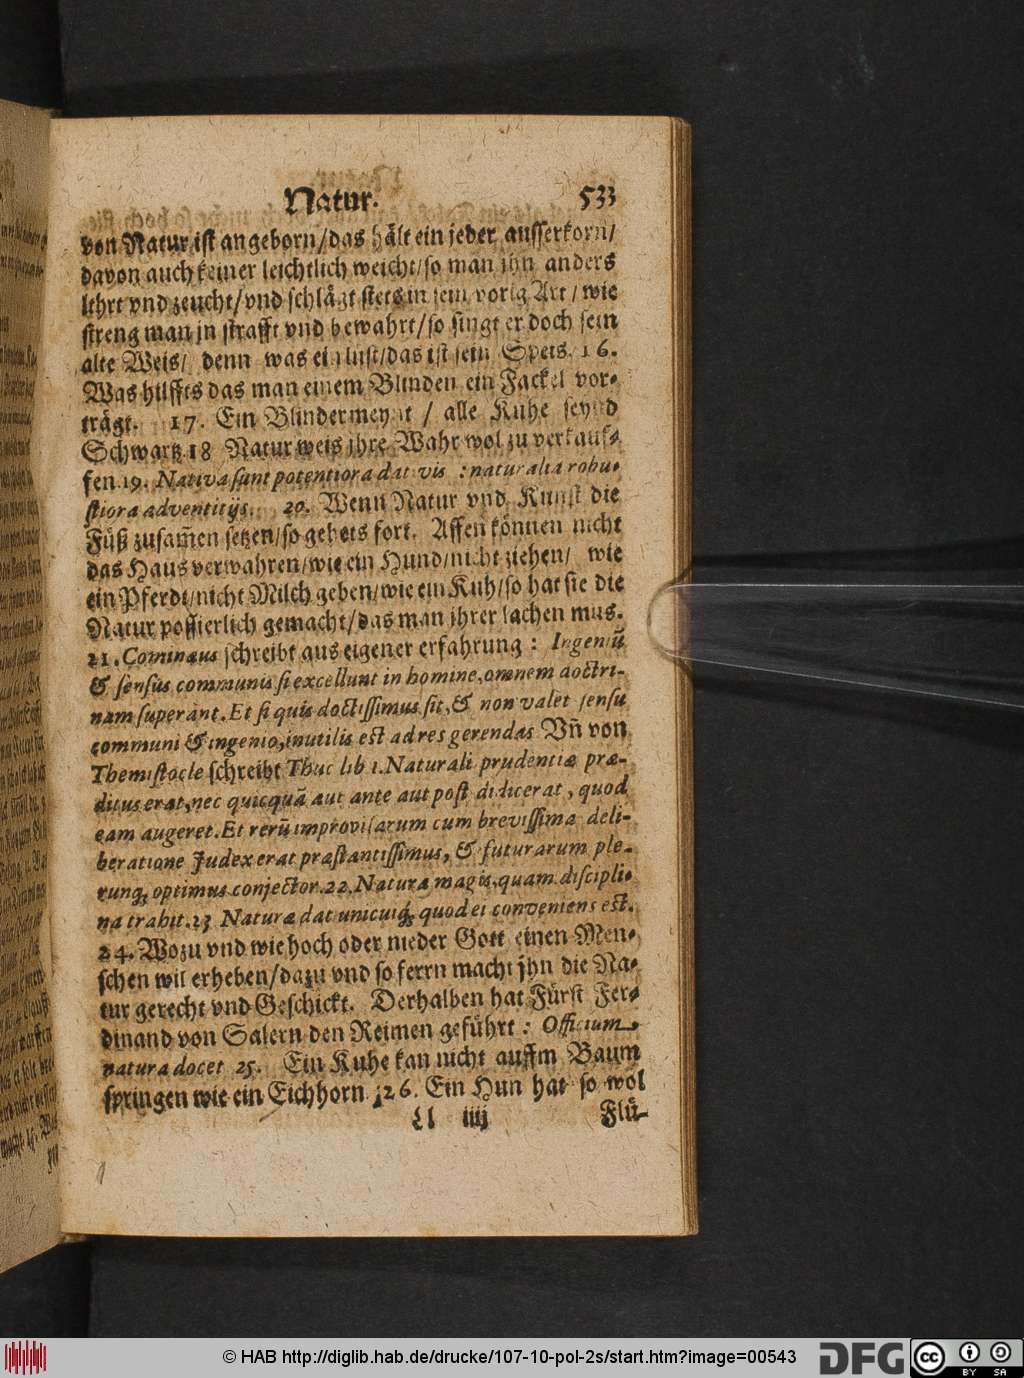 Natur. 533
von Natur ist angeborn/das hält ein jeder ausserkorn/
davon auch keiner leichtlich weicht/so man jhn anders
lehrt vnd zeucht/vnd schlägt stets in sein vorig Art/wie
streng man jn strafft vnd bewahrt/so singt er doch sein
alte Weis/ denn was ein lust/das ist sein Speis. 16.
Was hilffts das man einem Blinden ein Fackel vor-
trägt. 17. Ein Blinder meynt / alle Kühe seynd
Schwartz. 18 Natur weis jhre Wahr wol zu verkauf-
fen. 19. Nativa sunt potentiora dativis : naturalia robu-
stiora adventitijs. 20. Wenn Natur vnd Kunst die
Füß zusam̃en setzen/so gehets fort. Affen können nicht
das Haus verwahren/wie ein Hund/nicht ziehen/ wie
ein Pferdt/nicht Milch geben/wie ein Kuh/so hat sie die
Natur possierlich gemacht/das man jhrer lachen mus.
21. Cominæus schreibt aus eigener erfahrung : Ingeniū
& sensus communis si excellunt in homine, omnem doctri-
nam superant. Et si quis doctissimus sit, & non valet sensu
communi & ingenio, inutilis est ad res gerendas Vñ von
Themistocle schreibt Thuc lib 1. Naturali prudentiæ præ-
ditus erat, nec quicquā aut ante aut post didicerat, quod
eam augeret. Et rerū improvisarum cum brevissima deli-
beratione Judex erat præstantissimus, & futurarum ple-
runq; optimus conjector. 22. Natura magis, quam discipli-
na trahit. 23 Natura dat unicuiq; quod ei conveniens est.
24. Wozu vnd wie hoch oder nieder Gott einen Men-
schen wil erheben/dazu vnd so ferrn macht jhn die Na-
tur gerecht vnd Geschickt. Derhalben hat Fürst Fer-
dinand von Salern den Reimen geführt : Officium
natura docet 25. Ein Kuhe kan nicht auffm Baum
springen wie ein Eichhorn. 26. Ein Hun hat so wol
Ll iiij Flü-
© HAB http://diglib.hab.de/drucke/107-10-pol-2s/start.htm?image=00543
DFG
cc BY SA